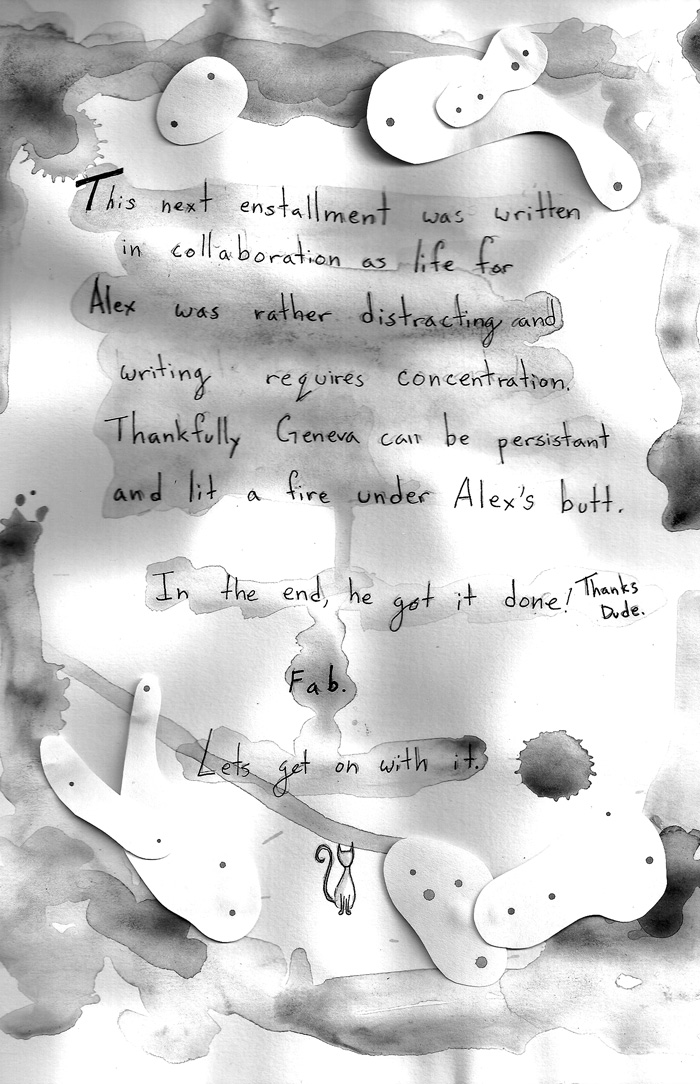 This next enstallment was written
in collaboration as life for
Alex was rather distracting and
writing requires concentration.
Thankfully Geneva can be persistant
and lit a fire under Alex's butt.
In the end, he got it done! Thanks
Dude.
Fab.
Lets get on with it.